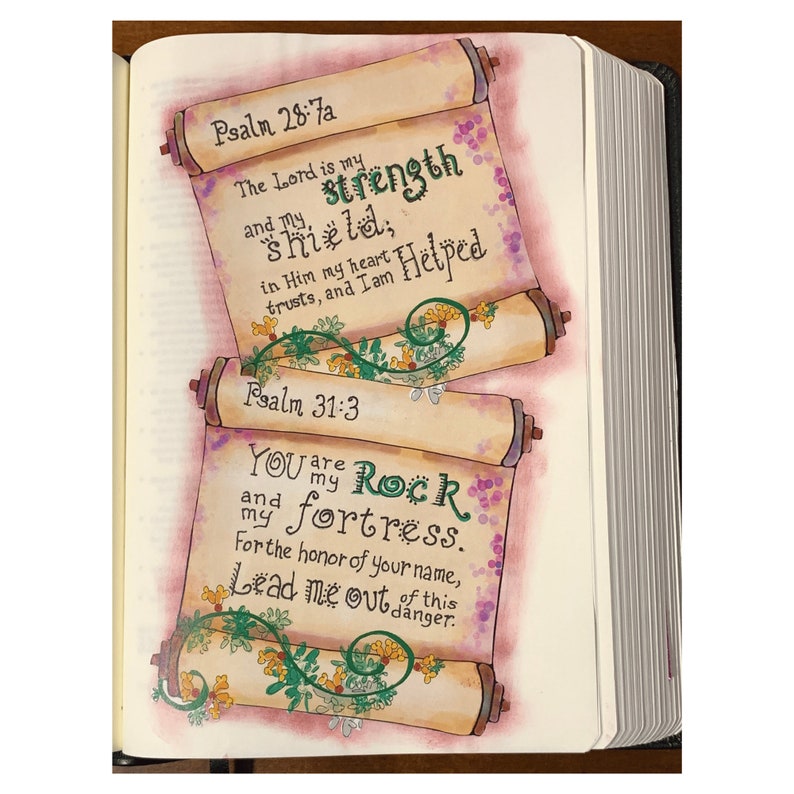 Psalm 28:7a
The Lord is my strength
and my shield;
in Him my heart
trusts, and I am Helped
Psalm 31:3
YOU are my Rock
and my fortress.
For the honor of your name,
Lead me out of this danger.